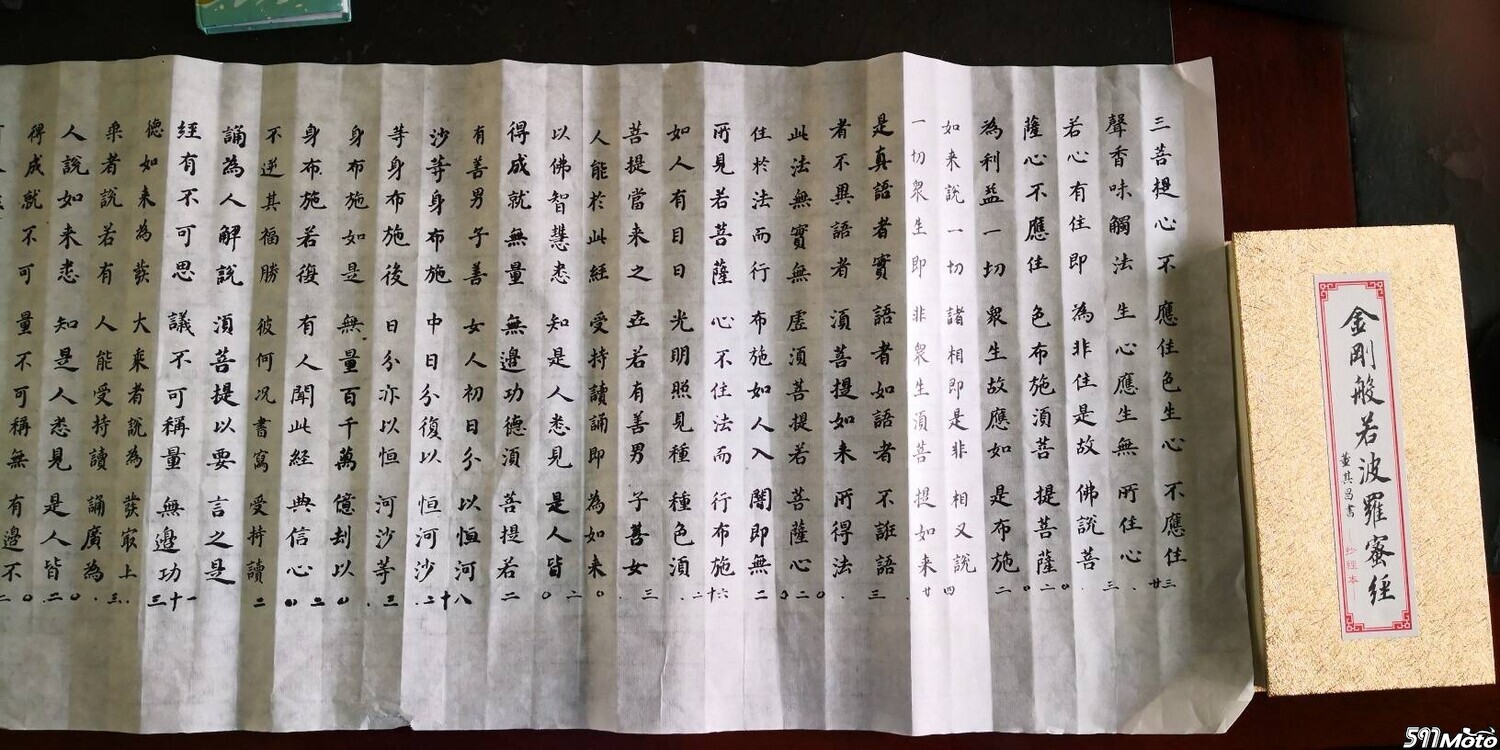 金剛般若波羅蜜經
董其昌書
抄經本
三菩提心不應住色生心不應住
聲香味觸法生心應生無所住心
若心有住即為非住是故佛說菩
薩心不應住色布施須菩提菩薩
為利益一切眾生故應如是布施
如来說一切諸相即是非相又說
一切眾生即非眾生須菩提如来
是真語者實語者如語者不誑語
者不異語者須菩提如来所得法
此法無實無虛須菩提若菩薩心
住於法而行布施如人入闇即無
所見若菩薩心不住法而行布施
如人有目日光明照見種種色須
菩提當来之世若有善男子善女
人能於此經受持讀誦即為如来
以佛智慧悉知是人悉見是人皆
得成就無量無邊功德須菩提若
有善男子善女人初日分以恒河
沙等身布施中日分復以恒河沙
等身布施後日分亦以恒河沙等
身布施如是無量百千萬億劫以
身布施若復有人聞此經典信心
不逆其福勝彼何况書寫受持讀
誦為人解說須菩提以要言之是
經有不可思議不可稱量無邊功
德如来為發大乘者說為發最上
乘者說若有人能受持讀誦廣為
人說如来悉知是人悉見是人皆
得成就不可量不可稱無有邊不
591Moto